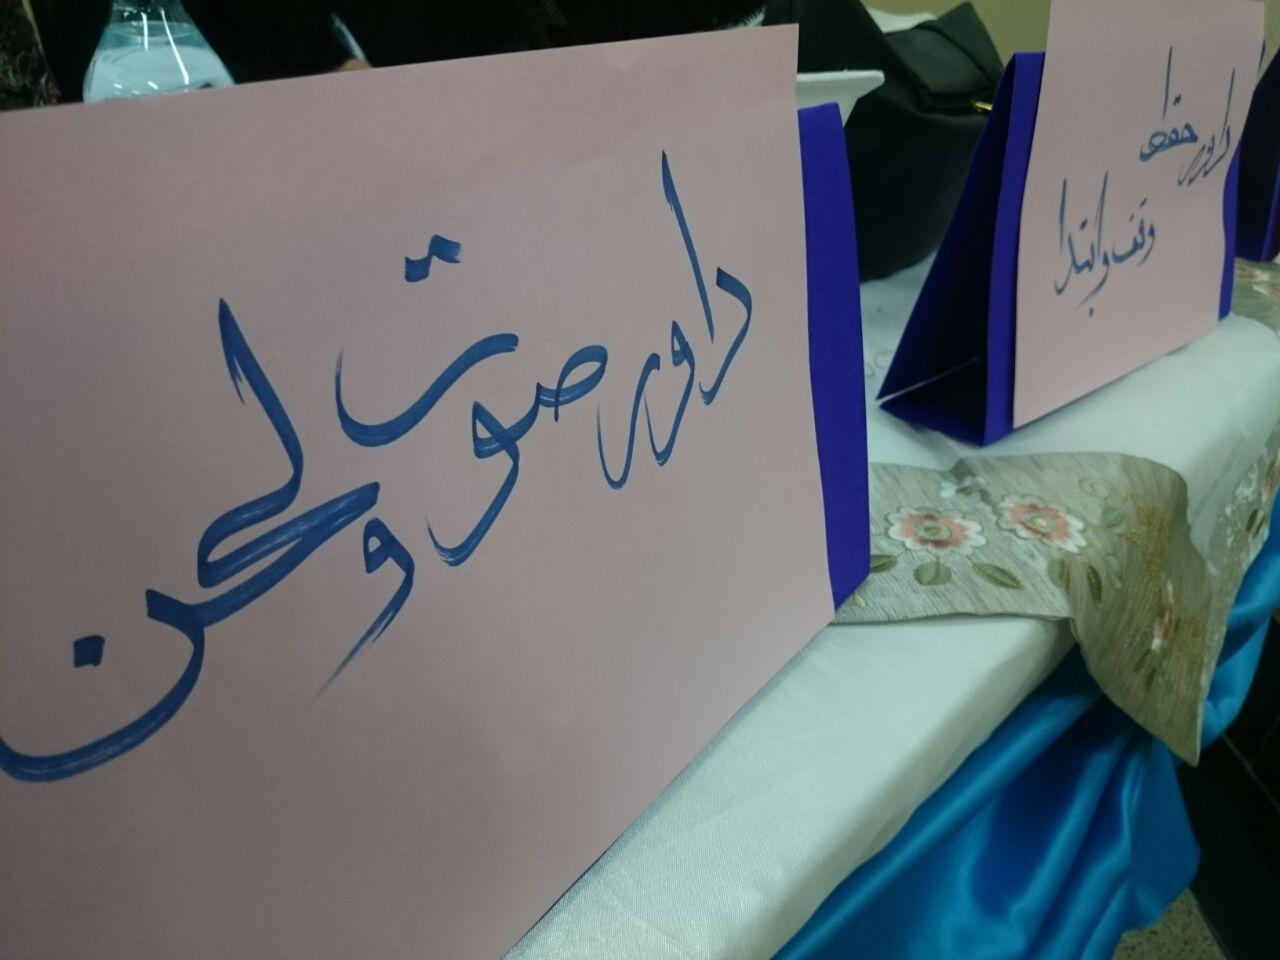 داور صوت
و لحن
داور حفظ
وقف و ابتدا